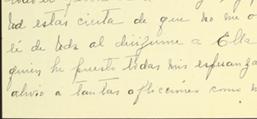 Ud estas cierta de que no me o
té de Uda al dirigirme a Elta
quien he puesto todas mis esperanza
alivio a tantas aflicciones como